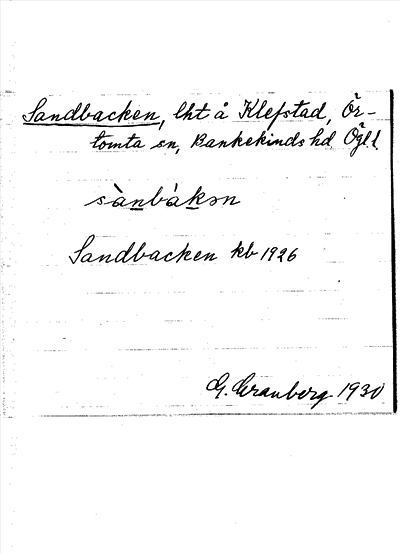 Sandbacken, lht å Klefstad, Ör-
tomta sn, Bankekinds hd Ögl.
sànbákən
Sandbacken kb 1926
G. Granberg 1930